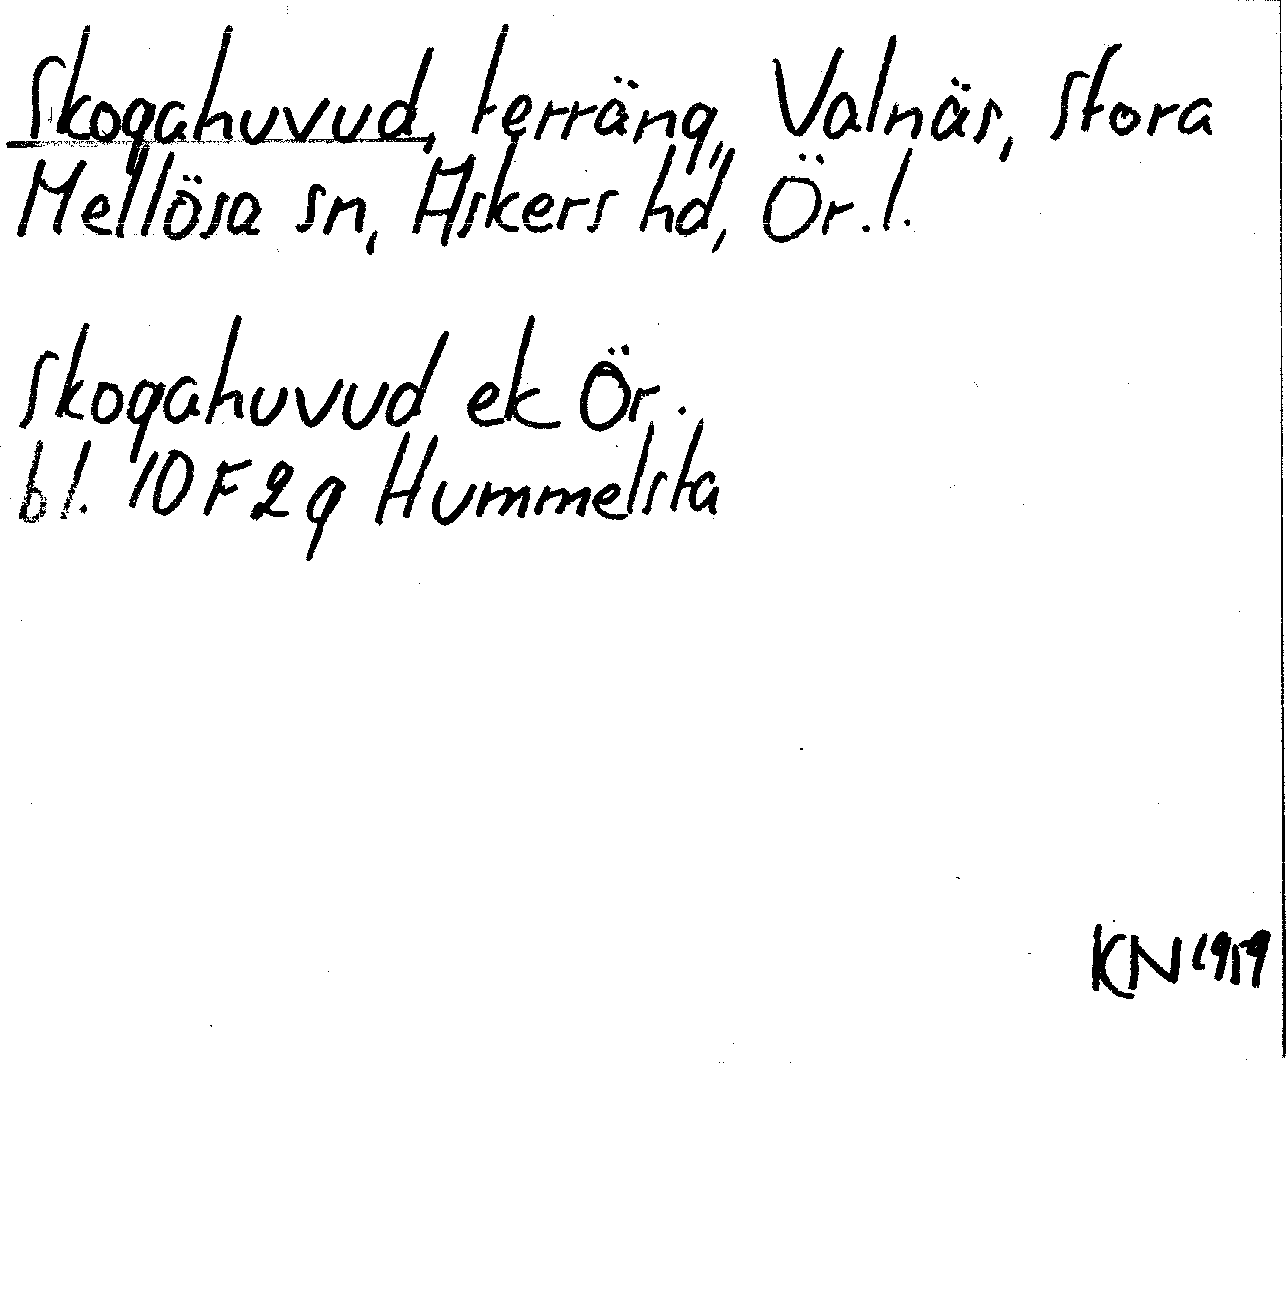 Skogahuvud, terräng, Valnäs, Stora
Mellösa sn, Askers hd, Ör.l.
Skogahuvud ek Ör.
bl. 10F2g Hummelsta
KN 1959